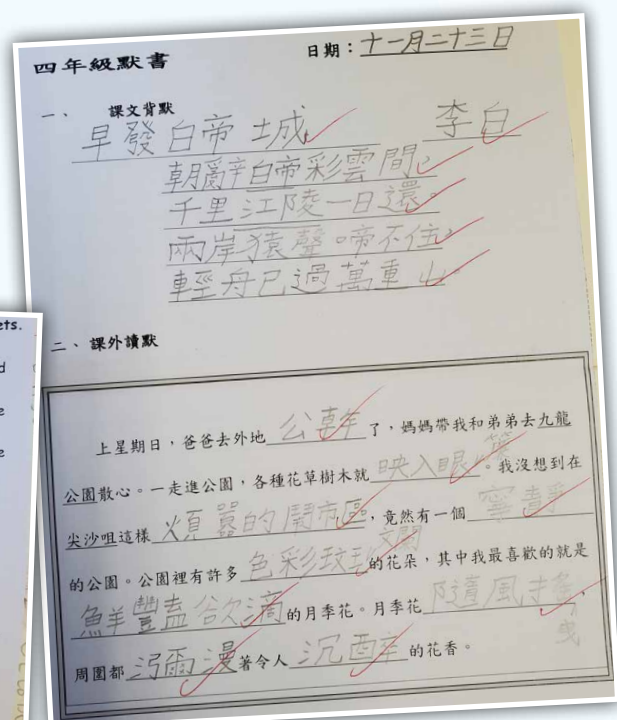 四年級默書 日期：十一月二十三日
一、 課文背默
早發白帝城 李白
朝辭白帝彩雲間，
千里江陵一日還。
兩岸猿聲啼不住，
輕舟已過萬重山。
二、課外讀默
上星期日，爸爸去外地公幹了，媽媽帶我和弟弟去九龍
公園散心。一走進公園，各種花草樹木就映入眼簾。我沒想到在
尖沙咀這樣煩囂的鬧市區，竟然有一個寧靜
的公園。公園裡有許多色彩斑斕的花朵，其中我最喜歡的就是
鮮豐盍欲滴的月季花。月季花隨風搖曳，
周圍都瀰漫著令人沉醉的花香。
ets.
d
e
e